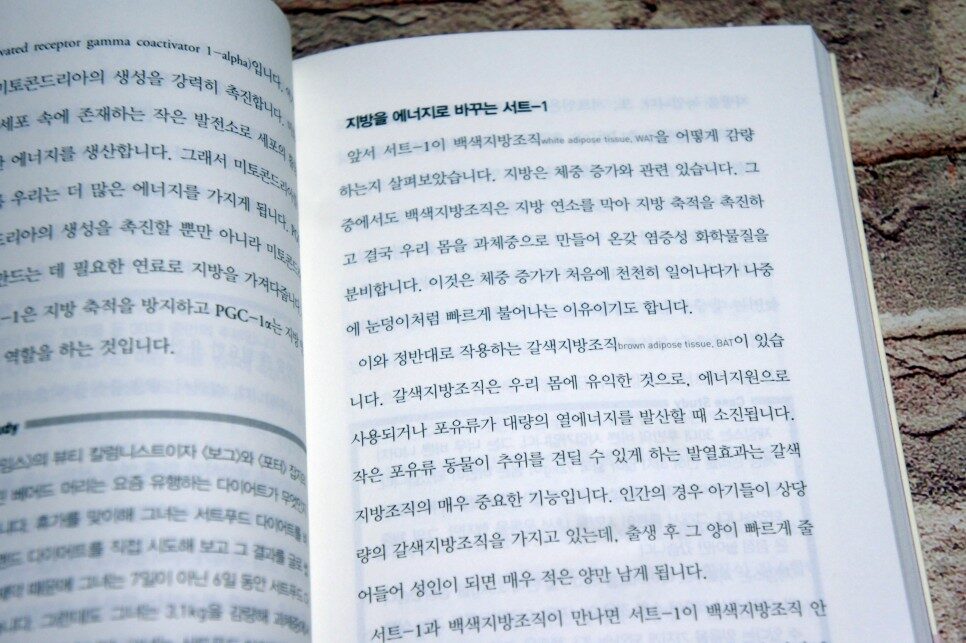 vated receptor gamma coactivator 1-alpha)입니다.
미토콘드리아의 생성을 강력히 촉진합니다.
세포 속에 존재하는 작은 발전소로 세포의
에너지를 생산합니다. 그래서 미토콘드리아
우리는 더 많은 에너지를 가지게 됩니다.
드리아의 생성을 촉진할 뿐만 아니라 미토콘드
만드는 데 필요한 연료로 지방을 가져다줍니다
-1은 지방 축적을 방지하고 PGC-1α는 지방
역할을 하는 것입니다.
udy
임스〉의 뷰티 칼럼니스트이자 〈보그〉와 〈포터〉 잡지
베어드 머리는 요즘 유행하는 다이어트가 무엇인지
니다. 휴가를 맞이해 그녀는 서트푸드 다이어트를
다이어트를 직접 시도해 보고 그 결과를 글로
때문에 그녀는 7일이 아닌 6일 동안 서트푸드
습니다. 그런데도 그녀는 3.1kg을 감량해
지방을 에너지로 바꾸는 서트-1
앞서 서트-1이 백색지방조직white adipose tissue, WAT을 어떻게 감량
하는지 살펴보았습니다. 지방은 체중 증가와 관련 있습니다. 그
중에서도 백색지방조직은 지방 연소를 막아 지방 축적을 촉진하
고 결국 우리 몸을 과체중으로 만들어 온갖 염증성 화학물질을
분비합니다. 이것은 체중 증가가 처음에 천천히 일어나다가 나중
에 눈덩이처럼 빠르게 불어나는 이유이기도 합니다.
이와 정반대로 작용하는 갈색지방조직brown adipose tissue, BAT이 있습
니다. 갈색지방조직은 우리 몸에 유익한 것으로, 에너지원으로
사용되거나 포유류가 대량의 열에너지를 발산할 때 소진됩니다.
작은 포유류 동물이 추위를 견딜 수 있게 하는 발열효과는 갈색
지방조직의 매우 중요한 기능입니다. 인간의 경우 아기들이 상당
량의 갈색지방조직을 가지고 있는데, 출생 후 그 양이 빠르게 줄
어들어 성인이 되면 매우 적은 양만 남게 됩니다.
서트-1과 백색지방조직이 만나면 서트-1이 백색지방조직 안